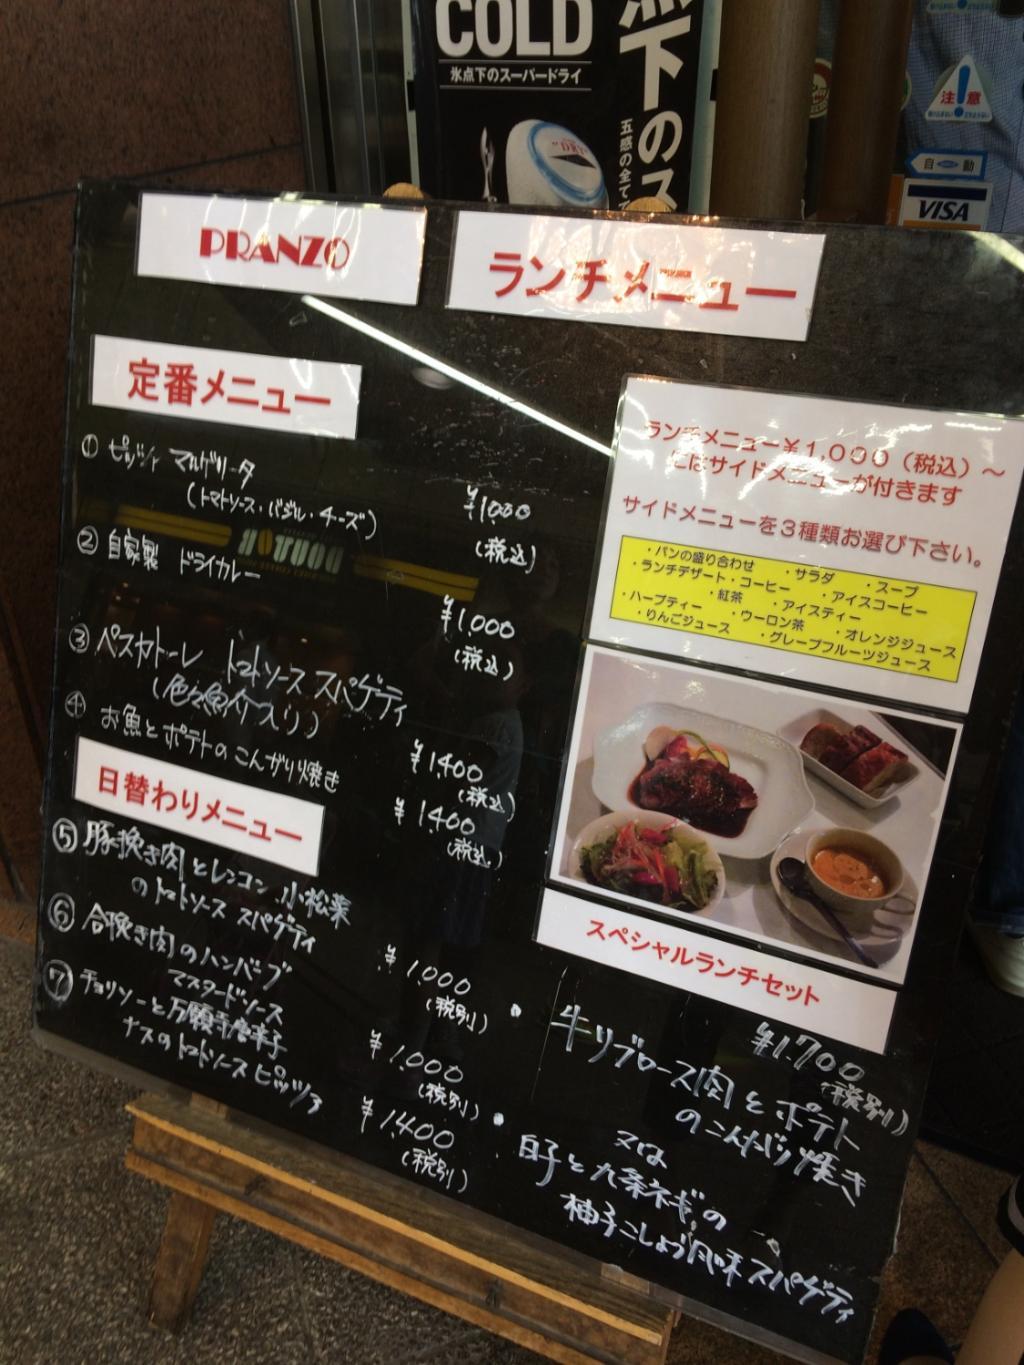 COLD
氷点下のスーパードライ
点下のス
五感の全てで
"DRY"
注意
自動
VISA
PRANZO
ランチメニュー
定番メニュー
① ピッツァ マルゲリータ
(トマトソース・バジル・チーズ)
¥1000
(税込)
② 自家製 ドライカレー
¥1.000
(税込)
③ ペスカトーレ トマトソース スパゲティ
(色々魚介入り)
¥1.400
(税込)
④ お魚とポテトのこんがり焼き
¥1.400
(税込)
日替わりメニュー
⑤ 豚挽き肉とレンコン 小松菜
のトマトソース スパゲティ
¥1.000
(税別)
⑥ 合挽き肉のハンバーグ
マスタードソース
¥1.000
(税別)
⑦ チョリソーと万願寺唐辛子
ナスのトマトソース ピッツァ
¥1.400
(税別)
ランチメニュー¥1,000(税込)～
にはサイドメニューが付きます
サイドメニューを3種類お選び下さい。
・パンの盛り合わせ ・サラダ ・スープ
・ランチデザート・コーヒー ・アイスコーヒー
・紅茶 ・アイスティー
・ハーブティー ・ウーロン茶 ・オレンジジュース
・りんごジュース ・グレープフルーツジュース
スペシャルランチセット
¥1.700
(税別)
・牛リブロース肉とポテト
のこんがり焼き
又は
・白子と九条ネギの
柚子こしょう風味スパゲティ